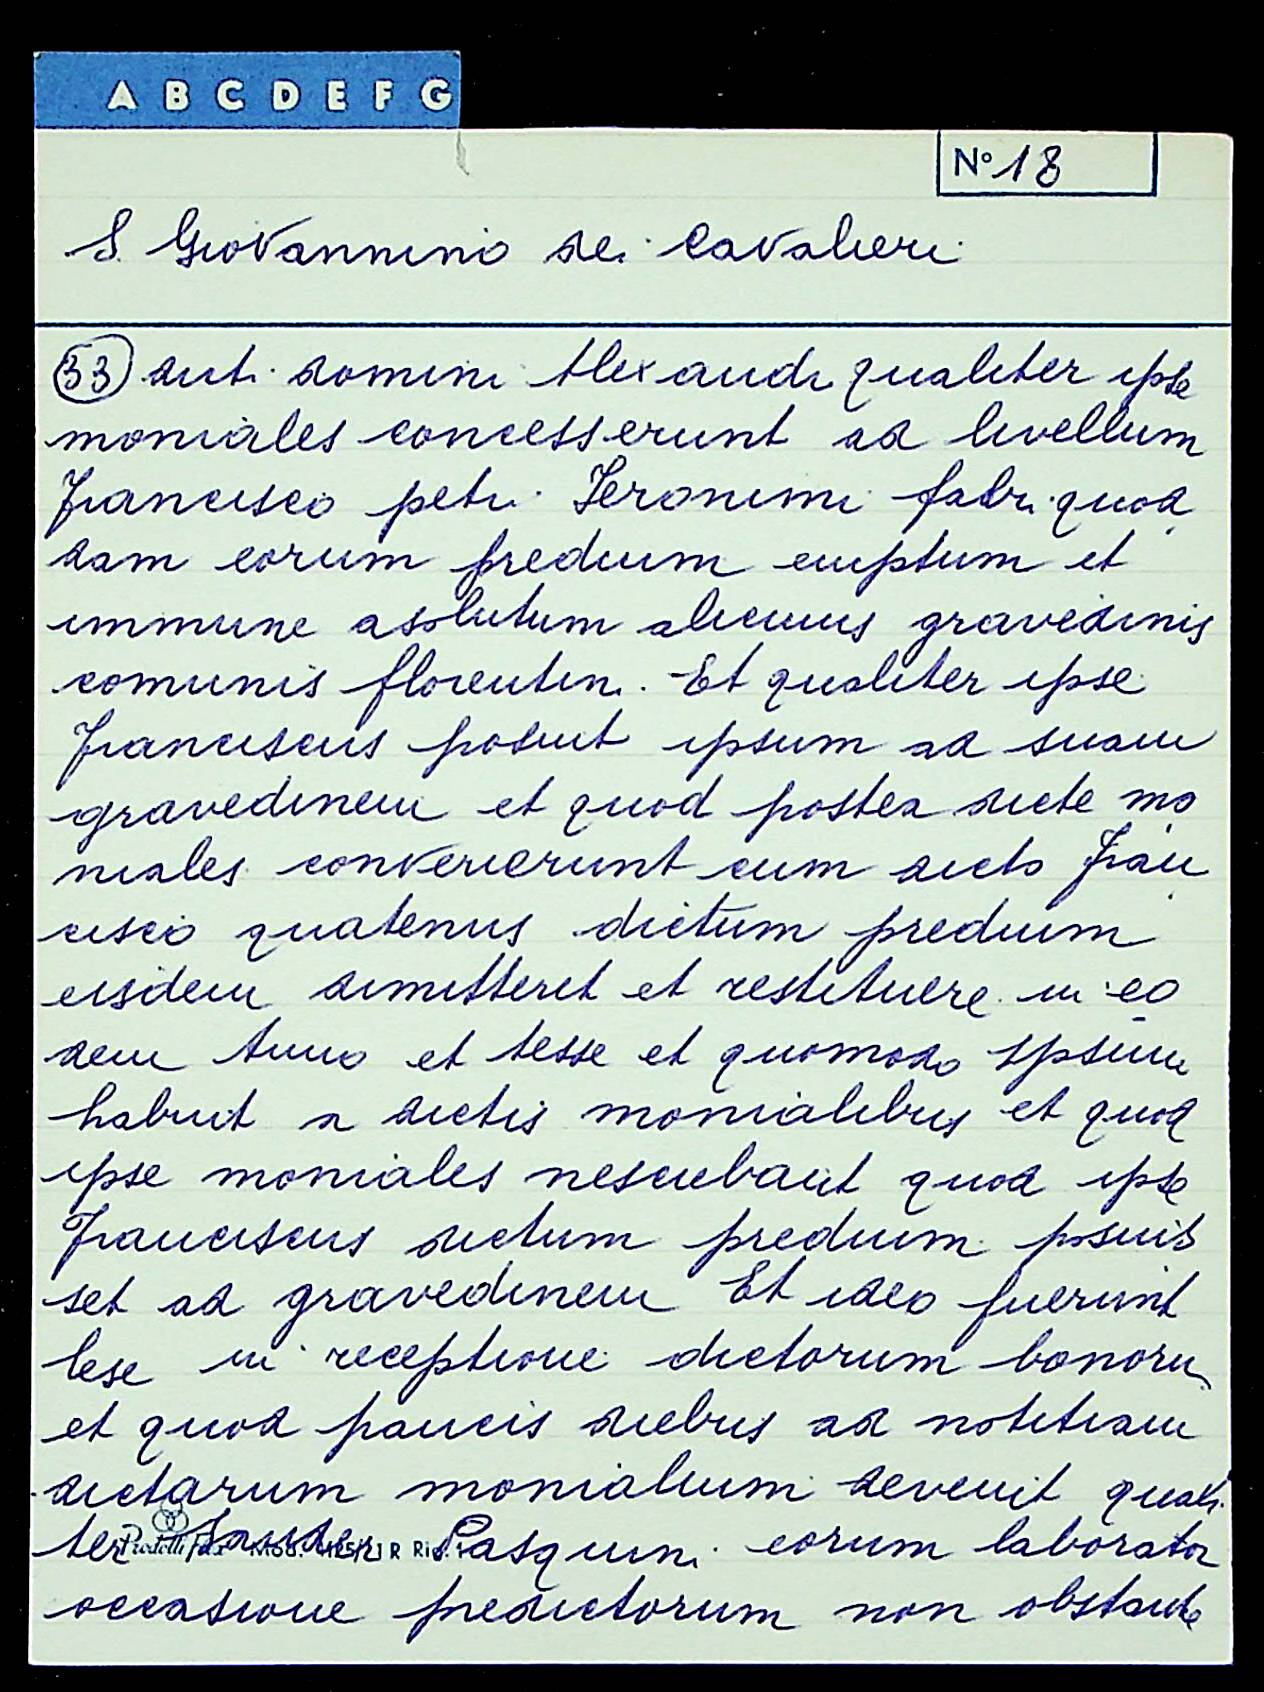 A B C D E F G
N° 18
S. Giovannino dei Cavalieri
33 dicti domini Alexandri qualiter ipse
moniales concesserunt ad livellum
Francisco petri Jeronimi fabri quod
dam eorum predium emptum et
immune asolutum alicuius gravedinis
comunis florentin. Et qualiter ipse
Franciscus posuit ipsum ad suam
gravedinem et quod postea dicte mo
niales convenerunt cum dicto Fran
cisco quatenus dictum predium
eisdem dimitteret et restituere in eo
dem Anno et tesse et quomodo ipsum
habuit a dictis monialibus et quod
ipse moniales nesciebant quod ipse
Franciscus dictum predium posuis
set ad gravedinem Et ideo fuerunt
lese in receptione dictorum bonoru
et quod paucis diebus ad notitiam
dictarum monialium devenit quali
ter Pasquini eorum laborator
Mod. R Rig.
occasione predictorum non obstante